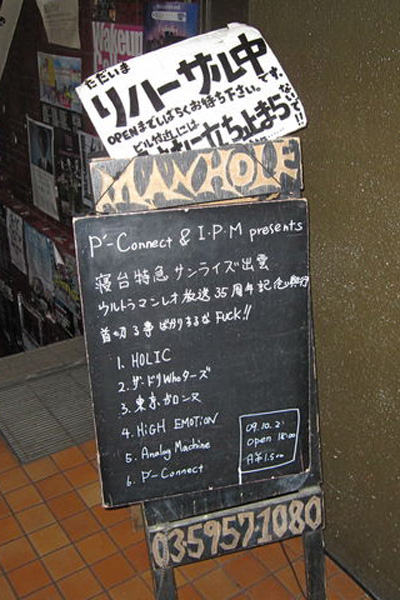 Wakeup
ただいま
リハーサル中
です。
OPENまでしばらくお待ち下さい。
ビル付近には
立ち止まら
ないで!!
MANHOLE
P'-Connect & I.P.M presents
寝台特急サンライズ出雲
ウルトラマンレオ放送35周年記念
首切る事ばかりするな FUCK!!
1. HOLIC
2. ザ・ドリWhoターズ
3. 東京ガロンヌ
4. HiGH EMOTiON
5. Analog Machine
6. P'-Connect
09.10.2
open 18:00
03-5957-1080